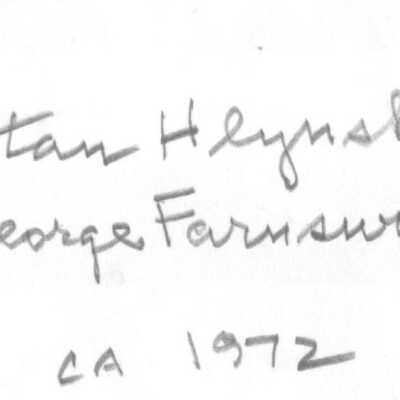 tan Hlynsk
eorge Farnswo
CA 1972